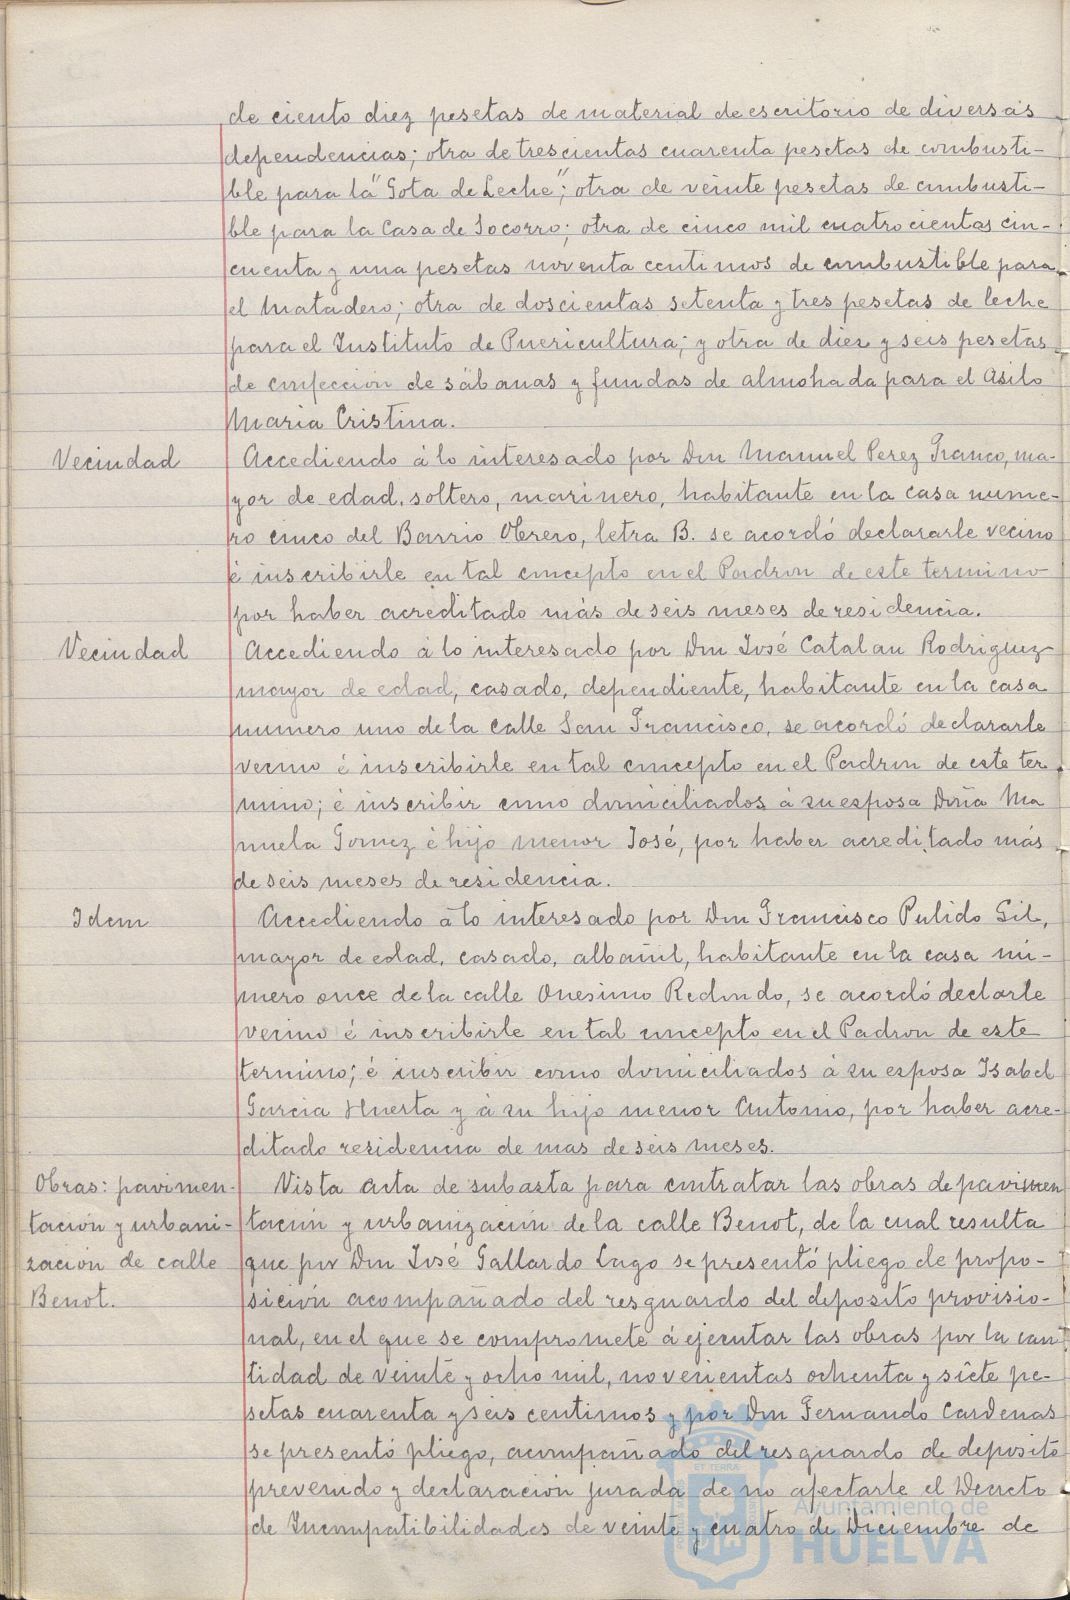 de ciento diez pesetas de material de escritorio de diversas
dependencias; otra de trescientas cuarenta pesetas de combusti-
ble para la "Gota de Leche"; otra de veinte pesetas de combusti-
ble para la Casa de Socorro; otra de cinco mil cuatrocientas cin-
cuenta y una pesetas noventa centimos de combustible para
el Matadero; otra de doscientas setenta y tres pesetas de leche
para el Instituto de Puericultura; y otra de diez y seis pesetas
de confección de sábanas y fundas de almohada para el Asilo
Maria Cristina.
Vecindad
Accediendo á lo interesado por Don Manuel Perez Franco, ma-
yor de edad, soltero, marinero, habitante en la casa nume-
ro cinco del Barrio Obrero, letra B. se acordó declararle vecino
é inscribirle en tal concepto en el Padron de este termino
por haber acreditado más de seis meses de residencia.
Vecindad
Accediendo á lo interesado por Don José Catalan Rodriguez
mayor de edad, casado, dependiente, habitante en la casa
numero uno de la calle San Francisco, se acordó declararle
vecino é inscribirle en tal concepto en el Padron de este ter
mino; é inscribir como domiciliados á su esposa Doña Ma
nuela Gomez é hijo menor José, por haber acreditado más
de seis meses de residencia.
Idem
Accediendo á lo interesado por Don Francisco Pulido Gil,
mayor de edad, casado, albañil, habitante en la casa nú-
mero once de la calle Onesimo Redondo, se acordó declarle
vecino é inscribirle en tal concepto en el Padron de este
termino; é inscribir como domiciliados á su esposa Isabel
Garcia Huerta y á su hijo menor Antonio, por haber acre-
ditado residencia de mas de seis meses.
Obras: pavimen-
tación y urbani-
zación de calle
Benot.
Vista acta de subasta para contratar las obras de pavimen
tación y urbanización de la calle Benot, de la cual resulta
que por Don José Gallardo Lago se presentó pliego de propo-
sición acompañado del resguardo del deposito provisio-
nal, en el que se compromete á ejecutar las obras por la can-
tidad de veinte y ocho mil, novecientas ochenta y siete pe-
setas cuarenta y seis centimos y por Don Fernando Cardenas
se presentó pliego, acompañado del resguardo de deposito
prevenido y declaración jurada de no afectarle el Decreto
de Incompatibilidades de veinte y cuatro de Diciembre de
Ayuntamiento de
HUELVA